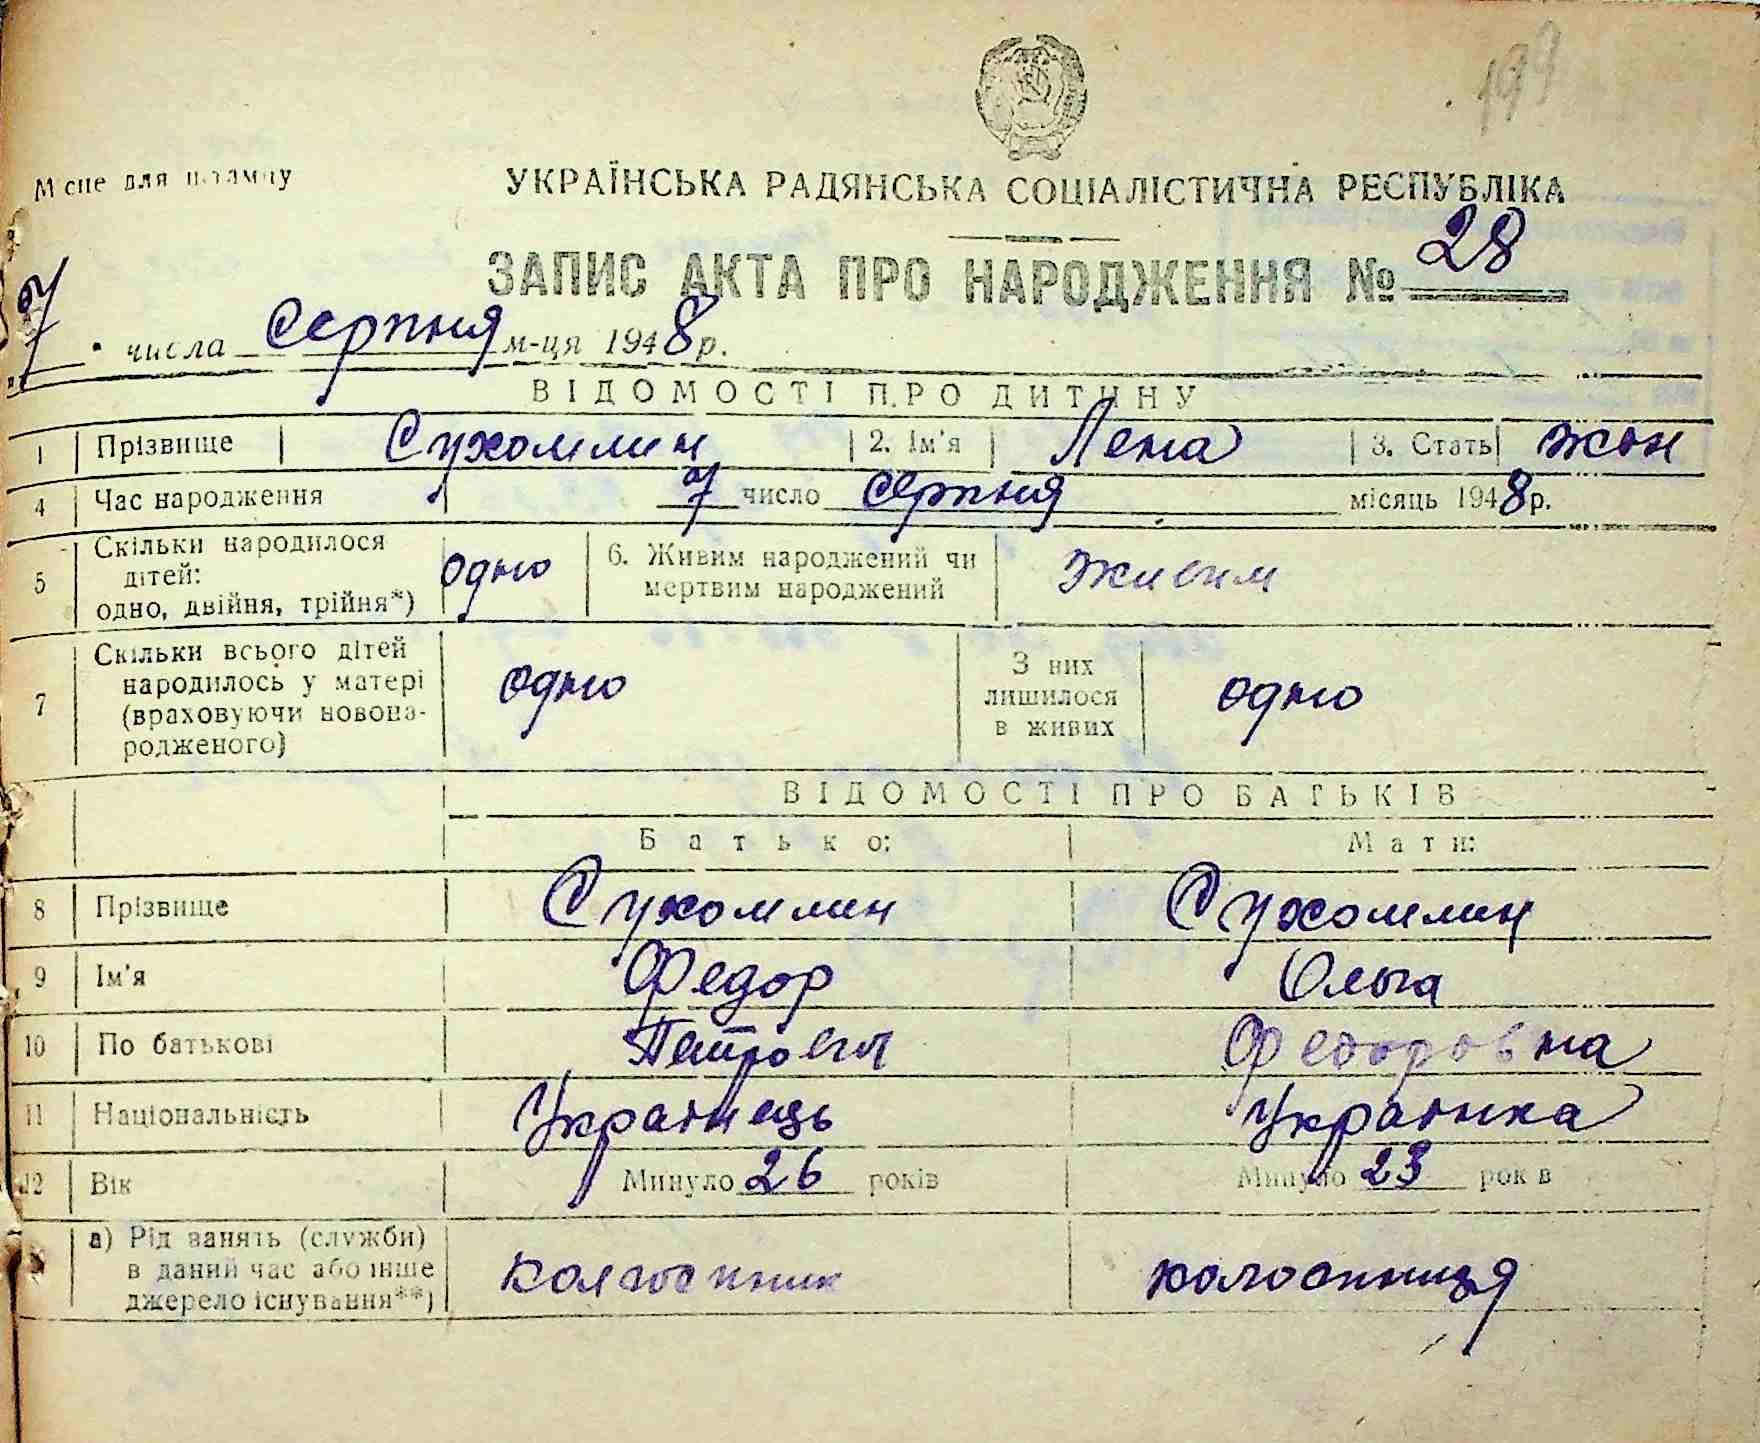 199
Місце для штампу
УКРАЇНСЬКА РАДЯНСЬКА СОЦІАЛІСТИЧНА РЕСПУБЛІКА
ЗАПИС АКТА ПРО НАРОДЖЕННЯ № 28
"7" числа Серпня м-ця 1948 р.
ВІДОМОСТІ ПРО ДИТИНУ
1 Прізвище Сухомлин 2. Ім'я Лена 3. Стать жон
4 Час народження 7 число серпня місяць 1948 р.
5 Скільки народилося дітей: одно, двійня, трійня*) одно 6. Живим народжений чи мертвим народжений Живим
7 Скільки всього дітей народилось у матері (враховуючи новонародженого) одно З них лишилося в живих одно
ВІДОМОСТІ ПРО БАТЬКІВ
Батько: Мати:
8 Прізвище Сухомлин Сухомлин
9 Ім'я Федор Ольга
10 По батькові Петрович Федоровна
11 Національність Українець Українка
12 Вік Минуло 26 років Минуло 23 років
а) Рід занять (служби) в даний час або інше джерело існування**) колгоспник колгоспниця